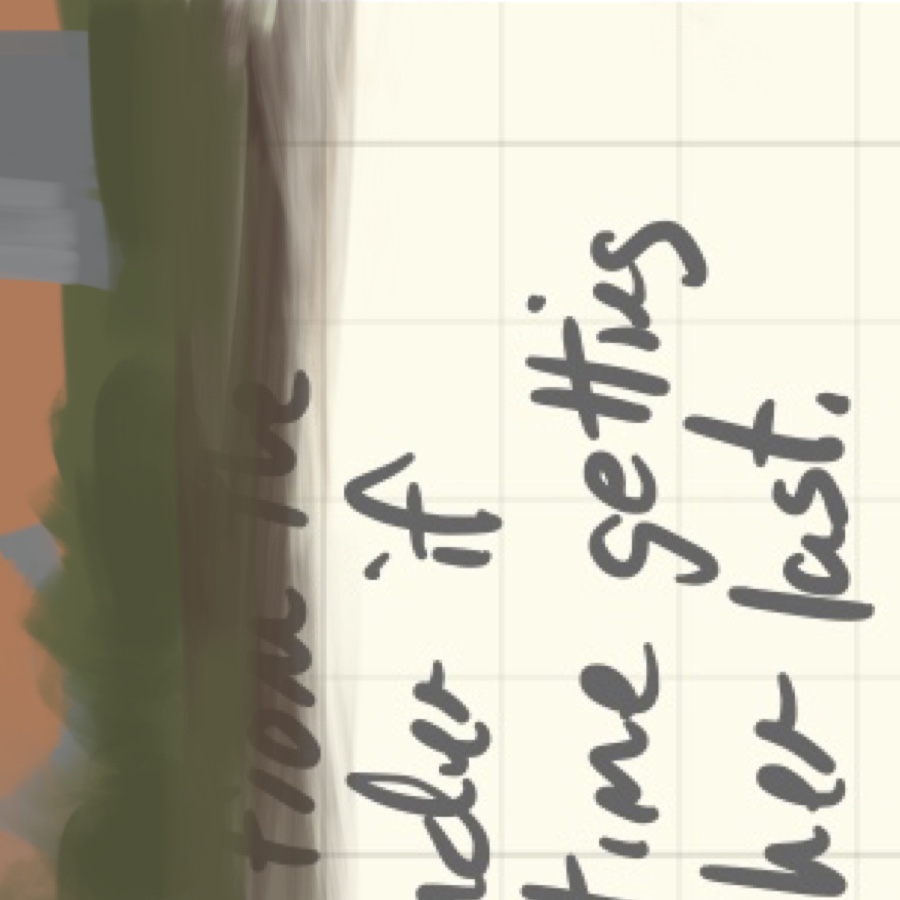 from the
nder if
time getting
her last.